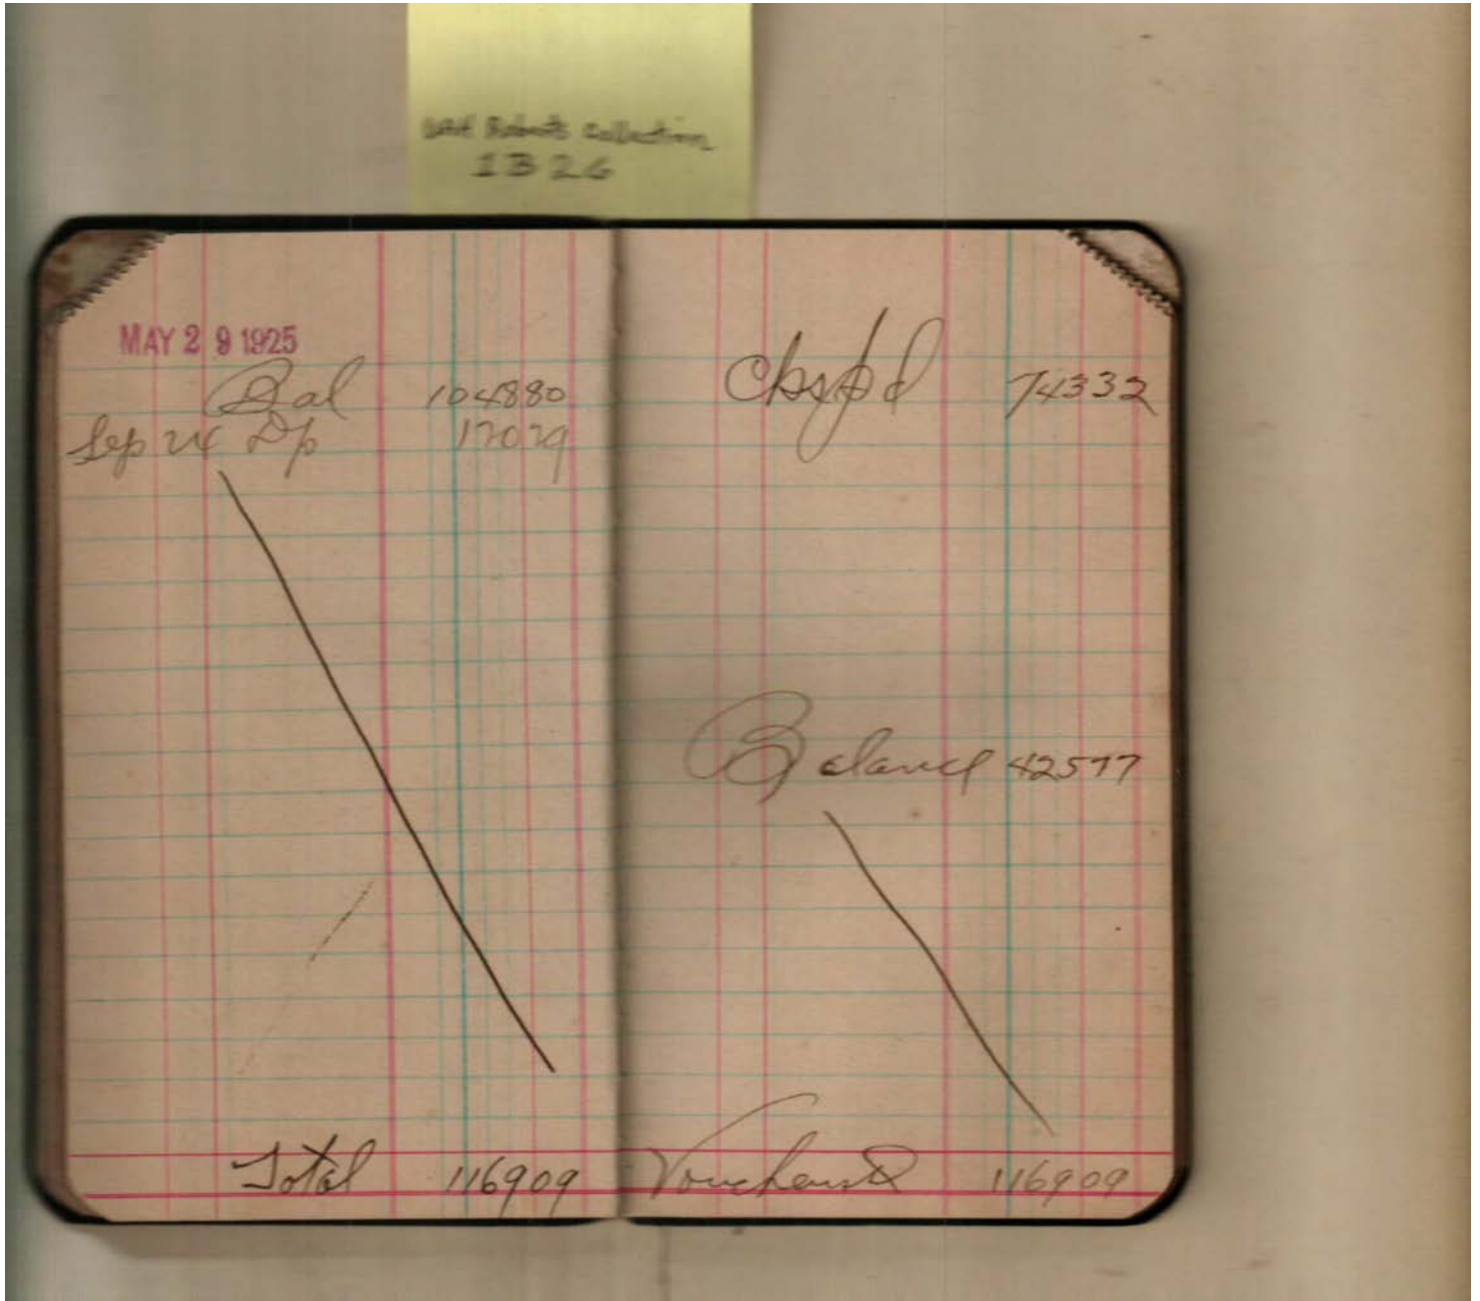 UAH Roberts Collection
1B26
MAY 29 1925
Bal 104880
Sep 24 Dp 12029
Total 116909
Cks pd 74332
Balance 42577
Vouchers 116909